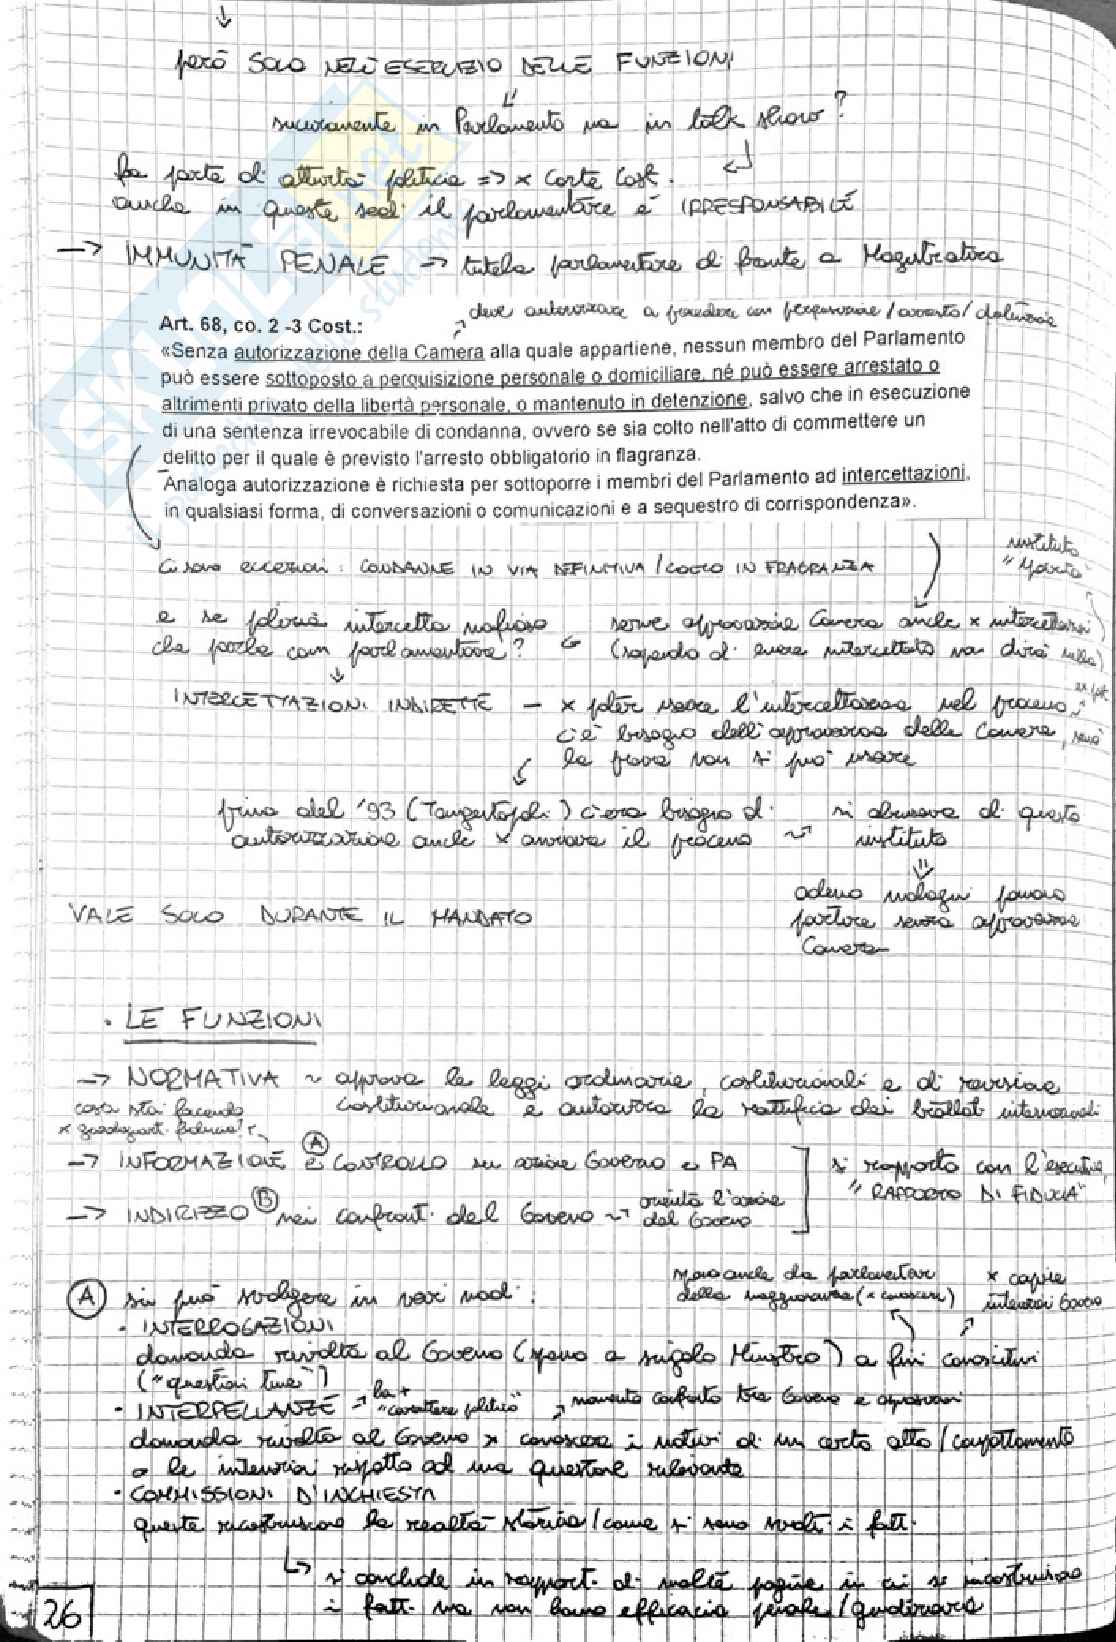 però SOLO NELL'ESERCIZIO DELLE FUNZIONI
sicuramente in Parlamento ma in talk show?
fa parte di attività politica => x Corte Cost.
anche in queste sedi il parlamentare è IRRESPONSABILE
→ IMMUNITÀ PENALE → tutela parlamentare di fronte a Magistratura
deve autorizzare a procedere con perquisizione/arresto/detenzione
Art. 68, co. 2 -3 Cost.:
«Senza autorizzazione della Camera alla quale appartiene, nessun membro del Parlamento
può essere sottoposto a perquisizione personale o domiciliare, né può essere arrestato o
altrimenti privato della libertà personale, o mantenuto in detenzione, salvo che in esecuzione
di una sentenza irrevocabile di condanna, ovvero se sia colto nell'atto di commettere un
delitto per il quale è previsto l'arresto obbligatorio in flagranza.
Analoga autorizzazione è richiesta per sottoporre i membri del Parlamento ad intercettazioni,
in qualsiasi forma, di conversazioni o comunicazioni e a sequestro di corrispondenza».
istituto
Ci sono eccezioni: CONDANNE IN VIA DEFINITIVA / COLTO IN FRAGRANZA
e se polizia intercetta mafioso
che parla con parlamentare?
serve approvazione Camera anche x intercettarsi
(sapendo di essere intercettato non dirà nulla)
INTERCETTAZIONI INDIRETTE - x poter usare l'intercettazione nel processo
c'è bisogno dell'approvazione della Camera, senò
la prova non si può usare
prima del '93 (Tangentopoli) c'era bisogno di
autorizzazione anche x avviare il processo
si abusava di questo
istituto
adesso indagini possono
partire senza approvazione
Camera
VALE SOLO DURANTE IL MANDATO
· LE FUNZIONI
→ NORMATIVA ~ approva le leggi ordinarie, costituzionali e di revisione
costituzionale e autorizza la rattifica dei trattati internazionali
cosa stai facendo
→ INFORMAZIONE e (A) CONTROLLO su azione Governo e PA
→ INDIRIZZO (B) nei confronti del Governo ~ orienta l'azione
del Governo
si rapporta con l'esecutivo,
"RAPPORTO DI FIDUCIA"
sono anche da parlamentari
della maggioranza (x conoscere)
x capire
intenzioni Governo
(A) si può svolgere in vari modi:
· INTERROGAZIONI
domanda rivolta al Governo (spesso a singolo Ministro) a fini conoscitivi
("question time")
· INTERPELLANZE → ha + "carattere politico" → momento confronto tra Governo e opposizioni
domanda rivolta al Governo x conoscere i motivi di un certo atto/comportamento
o le intenzioni rispetto ad una questione rilevante
· COMMISSIONI D'INCHIESTA
queste ricostruiscono la realtà storica/come si sono svolti i fatti.
↳ si conclude in rapporti di molte pagine in cui si ricostruiscono
i fatti ma non hanno efficacia penale/giudiziaria
26